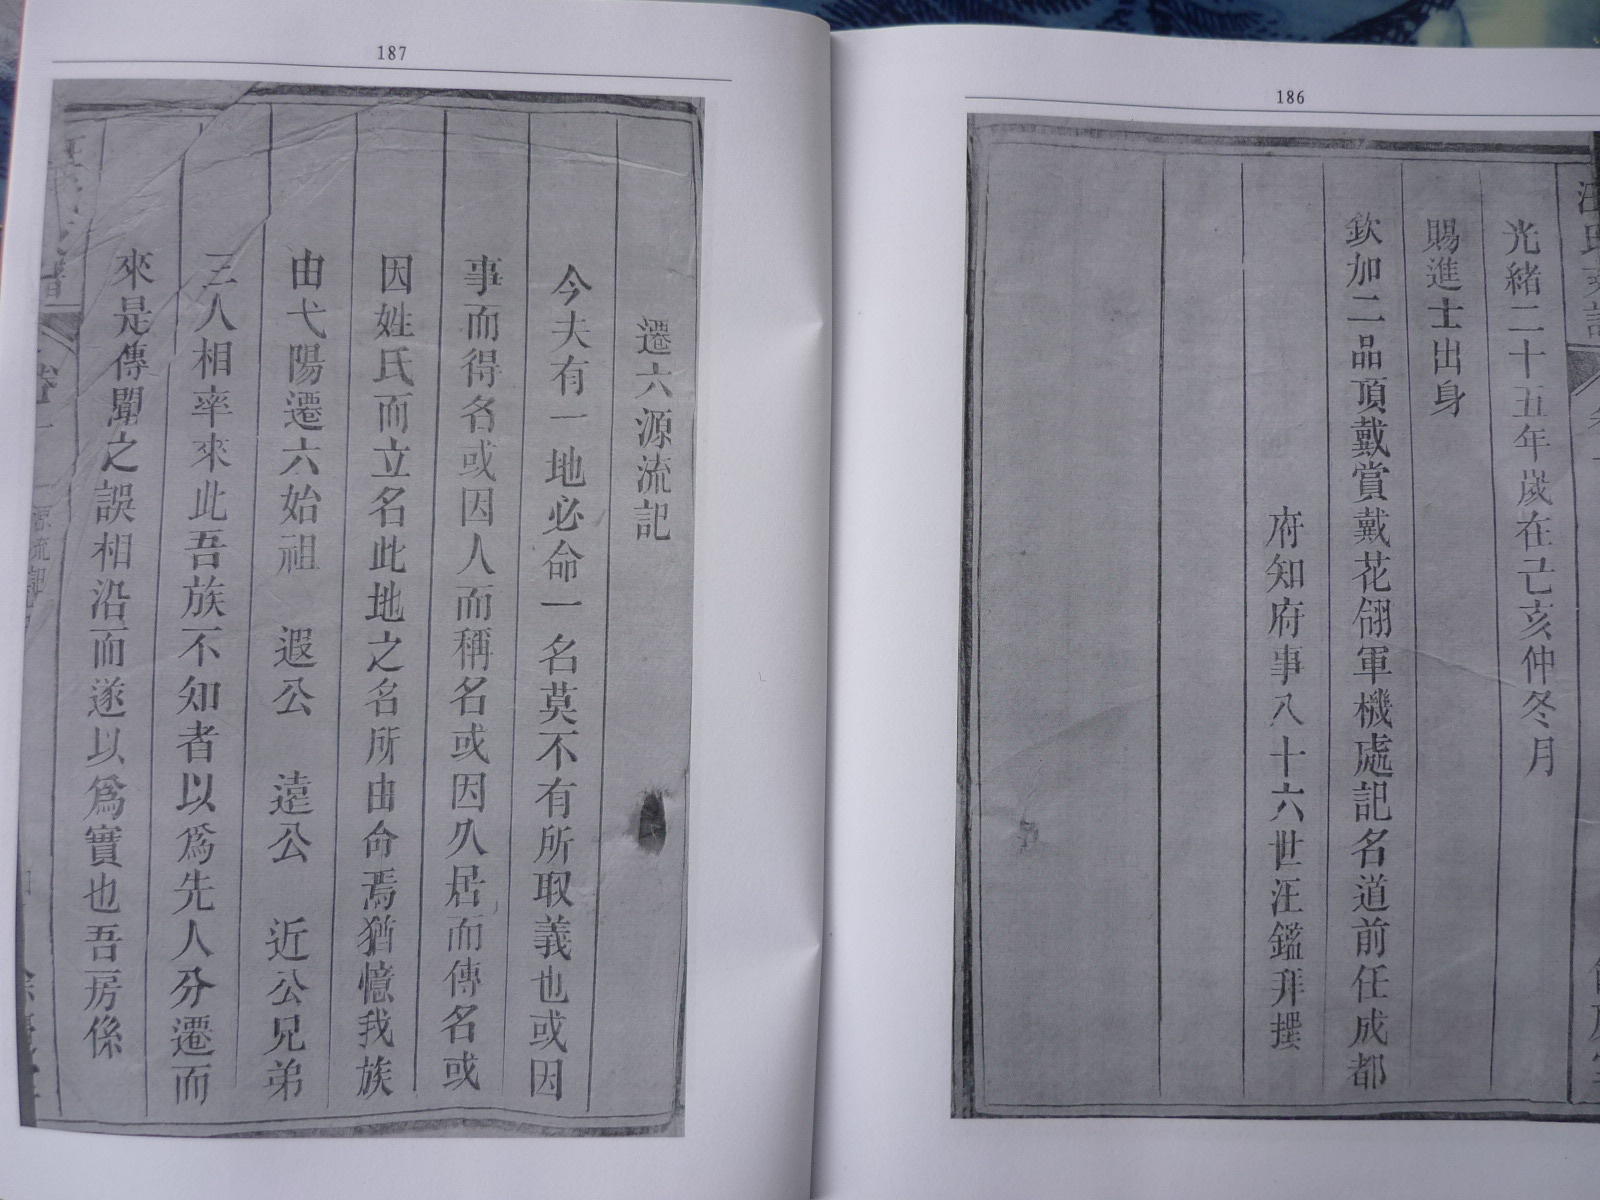 186
光緒二十五年歲在己亥仲冬月
賜進士出身
欽加二品頂戴賞戴花翎軍機處記名道前任成都
府知府事八十六世汪鑑拜撰
187
遷六源流記
今夫有一地必命一名莫不有所取義也或因
事而得名或因人而稱名或因久居而傳名或
因姓氏而立名此地之名所由命焉猶憶我族
由弋陽遷六始祖 遐公 遠公 近公兄弟
三人相率來此吾族不知者以為先人分遷而
來是傳聞之誤相沿而遂以為實也吾房係
源流記